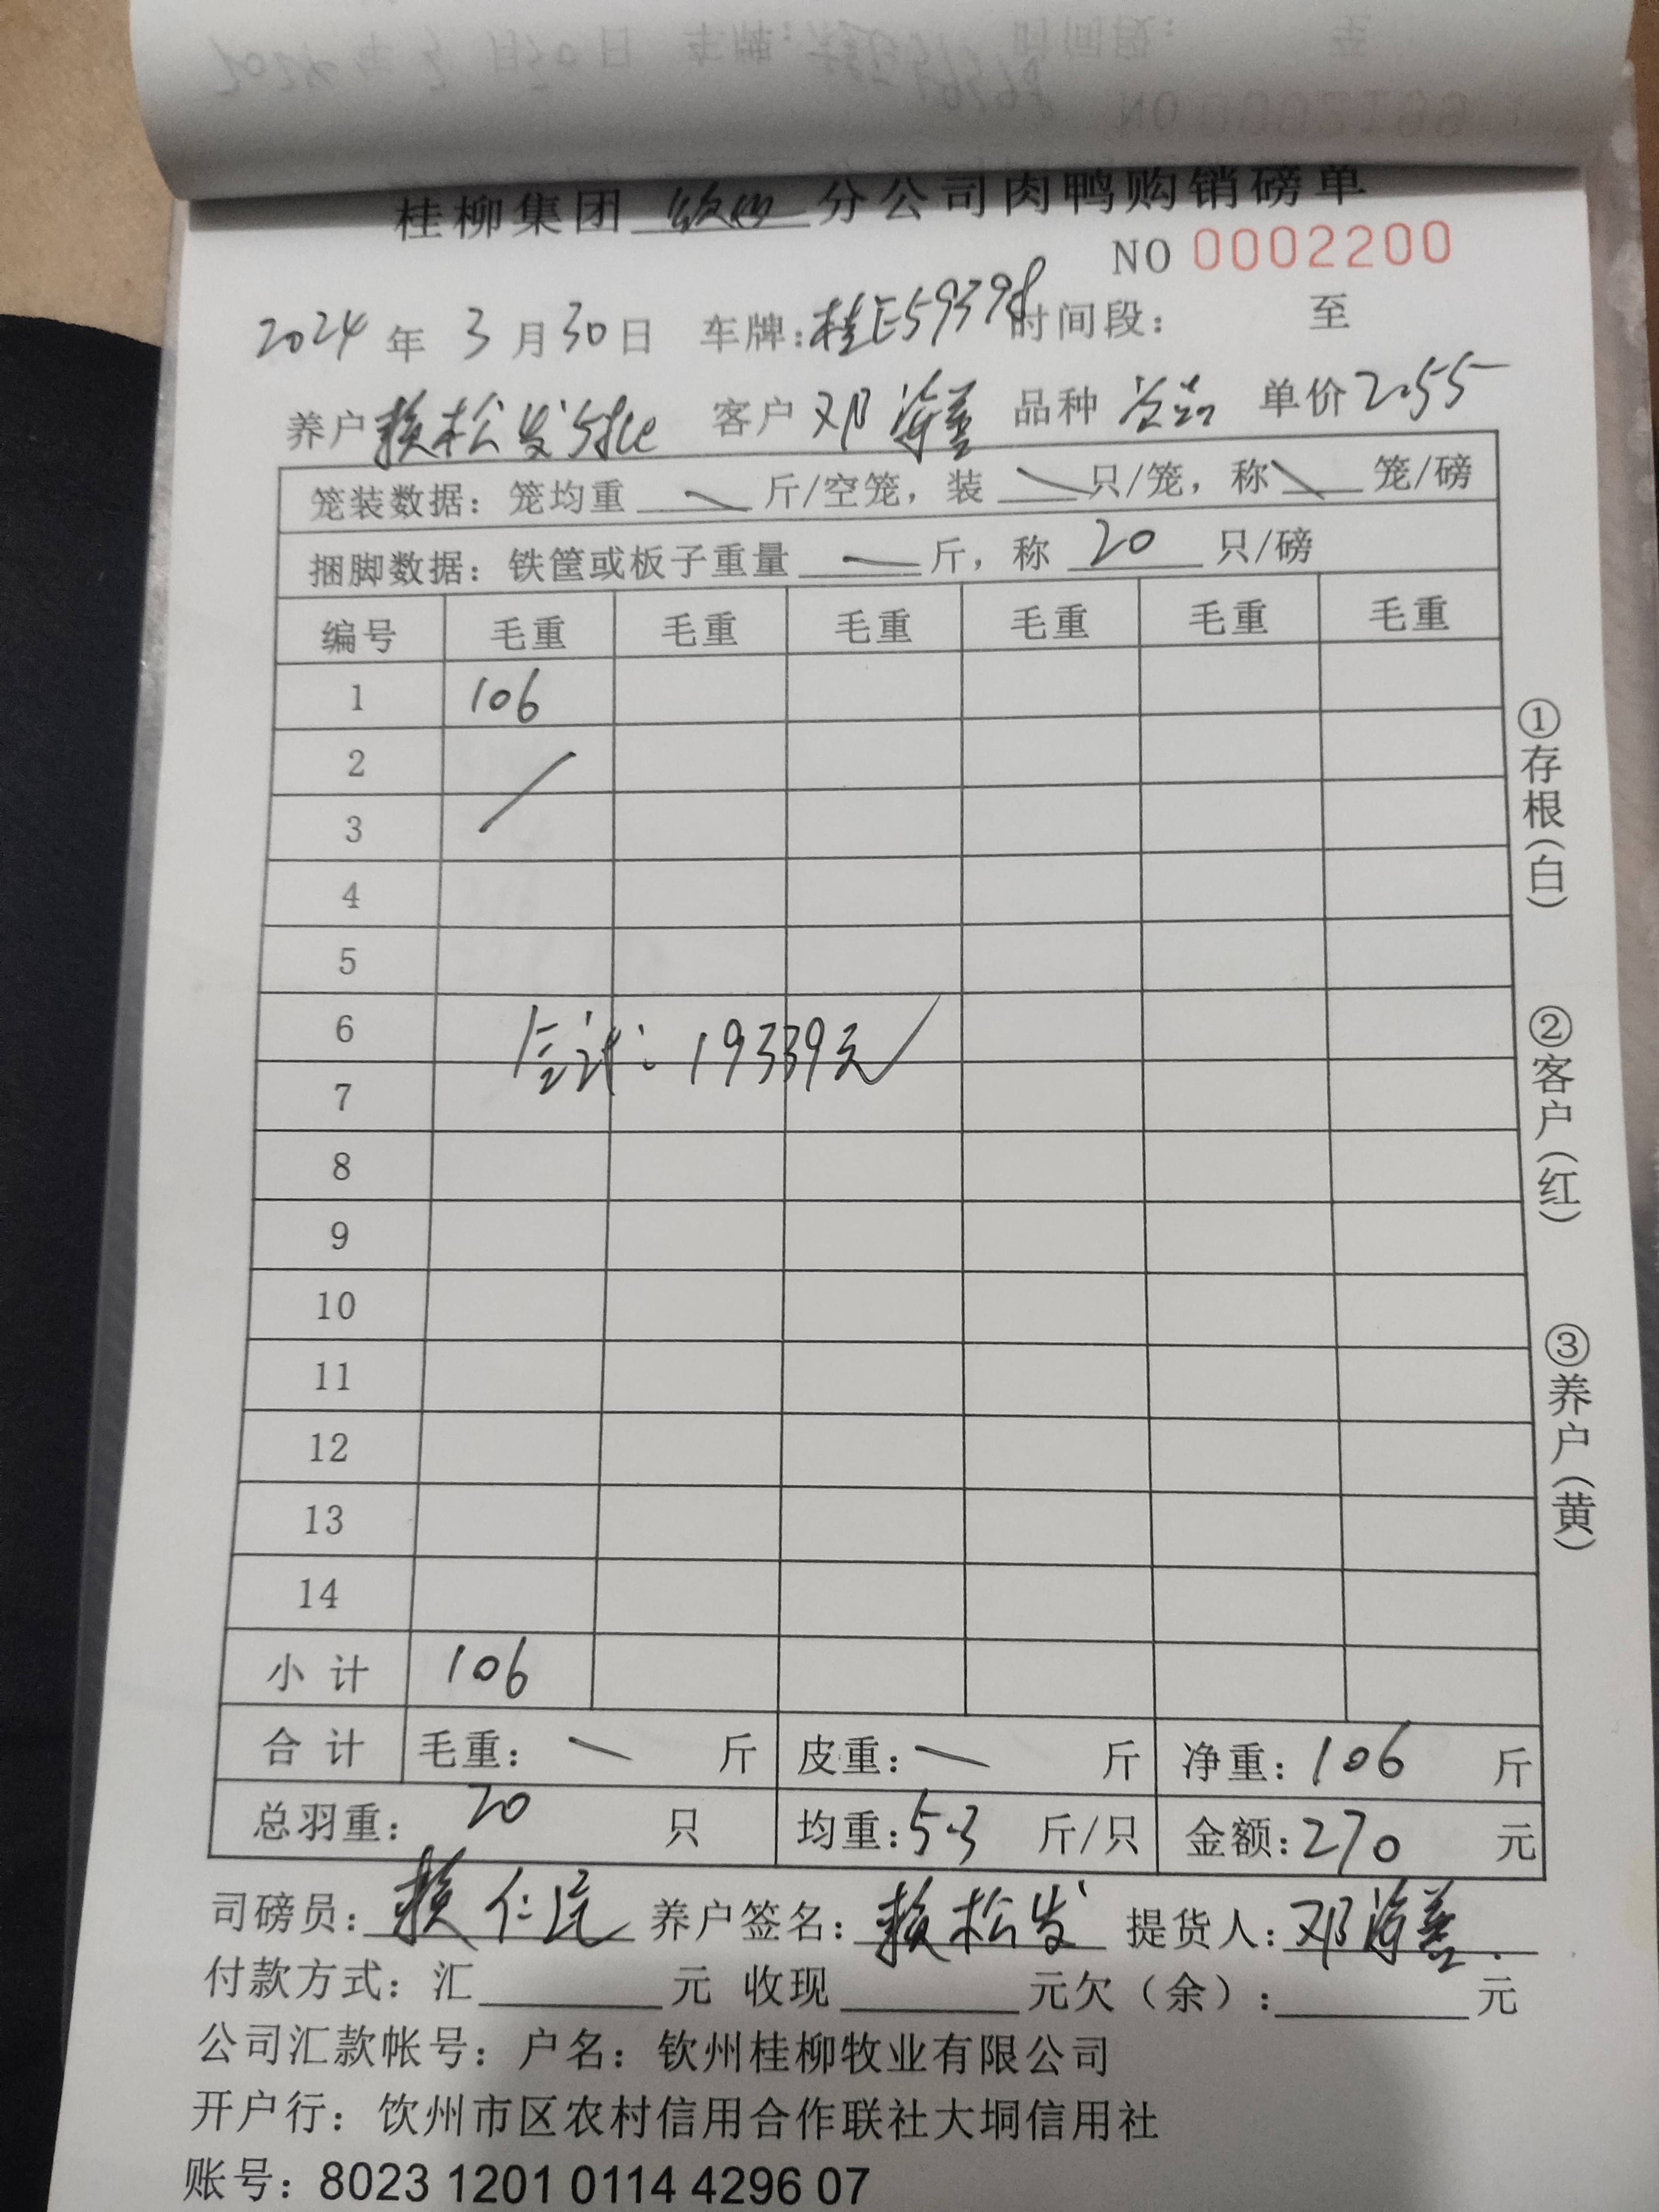 桂柳集团 钦州 分公司肉鸭购销磅单
NO 0002200
2024 年 3 月 30 日 车牌:桂E59398 时间段: 至
养户 赖松发 客户 邓海 品种 单价 2.55
笼装数据:笼均重 斤/空笼,装 只/笼,称 笼/磅
捆脚数据:铁筐或板子重量 一 斤,称 20 只/磅
编号 毛重 毛重 毛重 毛重 毛重 毛重
1 106
2
3
4
5
6
合计:19339元
7
8
9
10
11
12
13
14
小 计 106
合 计 毛重: 斤 皮重: 斤 净重:106 斤
总羽重: 20 只 均重:5.3 斤/只 金额:270 元
司磅员:赖仁 养户签名:赖松发 提货人:邓海
付款方式:汇 元 收现 元欠(余): 元
公司汇款帐号:户名:钦州桂柳牧业有限公司
开户行:饮州市区农村信用合作联社大垌信用社
账号:8023 1201 0114 4296 07
①存根(白)
②客户(红)
③养户(黄)